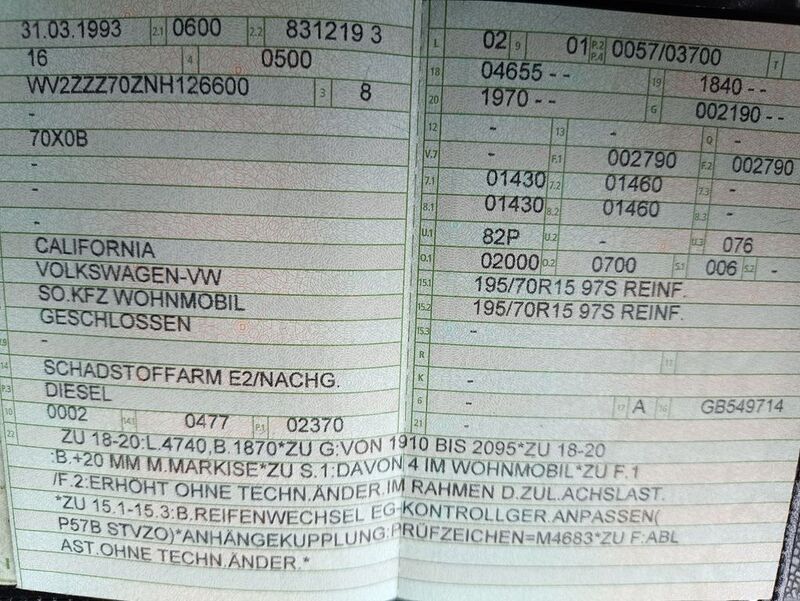 31.03.1993 2.1 0600 2.2 831219 3
16 4 0500
WV2ZZZ70ZNH126600 3 8
-
70X0B
-
-
-
CALIFORNIA
VOLKSWAGEN-VW
SO.KFZ WOHNMOBIL
GESCHLOSSEN
-
14 SCHADSTOFFARM E2/NACHG.
P.3 DIESEL
10 0002 14.1 0477 P.1 02370
L 02 9 01 P.2 P.4 0057/03700 T
18 04655 - - 19 1840 - -
20 1970 - - G 002190 - -
12 - 13 - Q -
V.7 - F.1 002790 F.2 002790
7.1 01430 7.2 01460 7.3 -
8.1 01430 8.2 01460 8.3 -
U.1 82P U.2 - U.3 076
O.1 02000 O.2 0700 S.1 006 S.2 -
15.1 195/70R15 97S REINF.
15.2 195/70R15 97S REINF.
15.3 -
R
K -
6 - 17 A 16 GB549714
21 -
22 ZU 18-20:L.4740,B.1870*ZU G:VON 1910 BIS 2095*ZU 18-20
:B.+20 MM M.MARKISE*ZU S.1:DAVON 4 IM WOHNMOBIL*ZU F.1
/F.2:ERHÖHT OHNE TECHN.ÄNDER.IM RAHMEN D.ZUL.ACHSLAST.
*ZU 15.1-15.3:B.REIFENWECHSEL EG-KONTROLLGER.ANPASSEN(
P57B STVZO)*ANHÄNGEKUPPLUNG:PRÜFZEICHEN=M4683*ZU F:ABL
AST.OHNE TECHN.ÄNDER.*